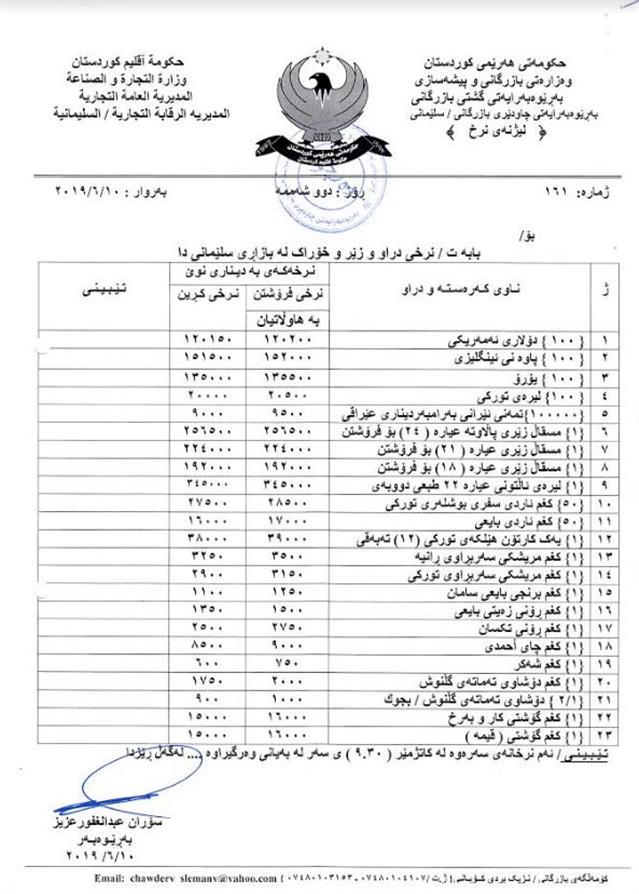 حکومەتی هەرێمی کوردستان
وەزارەتی بازرگانی و پیشەسازی
بەڕێوەبەرایەتی گشتی بازرگانی
بەڕێوەبەرایەتی چاودێری بازرگانی / سلێمانی
﴿ لیژنەی نرخ ﴾
حكومة أقليم كوردستان
وزارة التجارة و الصناعة
المديرية العامة التجارية
المديريه الرقابة التجارية / السليمانية
ژمارە: ١٦١ ڕۆژ : دوو شەممە بەروار : ٢٠١٩/٦/١٠
بۆ/
بابە ت / نرخی دراو و زێر و خۆراک لە بازاڕی سلێمانی دا
ژ ناوی کەرەستە و دراو نرخەکەی بە دیناری نوێ تێبینی
نرخی فرۆشتن بە هاوڵاتیان نرخی کڕین
١ { ١٠٠ } دۆلاری ئەمەریکی ١٢٠٢٠٠ ١٢٠١٥٠
٢ { ١٠٠ } پاوە نی ئینگلیزی ١٥٢٠٠٠ ١٥١٥٠٠
٣ { ١٠٠ } یۆرۆ ١٣٥٥٠٠ ١٣٥٠٠٠
٤ { ١٠٠ } لیرەی تورکی ٢٠٥٠٠ ٢٠٠٠٠
٥ {١٠٠٠٠٠}تمەنی ئێرانی بەرامبەردیناری عێراقی ٩٥٠٠ ٩٠٠٠
٦ {١} مسقاڵ زێری پاڵاوتە عیارە ( ٢٤ ) بۆ فرۆشتن ٢٥٦٥٠٠ ٢٥٦٥٠٠
٧ {١} مسقاڵ زێری عیارە ( ٢١ ) بۆ فرۆشتن ٢٢٤٠٠٠ ٢٢٤٠٠٠
٨ {١} مسقاڵ زێری عیارە ( ١٨ ) بۆ فرۆشتن ١٩٢٠٠٠ ١٩٢٠٠٠
٩ {١} لیرەی ئاڵتونی عیارە ٢٢ طبعی دووبەی ٣٤٥٠٠٠ ٣٤٥٠٠٠
١٠ {٥٠} کغم ئاردی سفری بوشلەری تورکی ٢٨٥٠٠ ٢٧٥٠٠
١١ {٥٠} کغم ئاردی بایعی ١٧٠٠٠ ١٦٠٠٠
١٢ {١} یەک کارتۆن هێلکەی تورکی (١٢) تەبەقی ٣٩٠٠٠ ٣٨٠٠٠
١٣ {١} کغم مریشکی سەربڕاوی ڕانیە ٣٥٠٠ ٣٢٥٠
١٤ {١} کغم مریشکی سەربڕاوی تورکی ٣١٥٠ ٢٩٠٠
١٥ {١} کغم برنجی بایعی سامان ١٢٥٠ ١١٠٠
١٦ {١} کغم ڕۆنی زەیتی بایعی ١٥٠٠ ١٣٥٠
١٧ {١} کغم ڕۆنی تکسان ٢٧٥٠ ٢٥٠٠
١٨ {١} کغم چای أحمدی ٩٠٠٠ ٨٥٠٠
١٩ {١} کغم شەکر ٧٥٠ ٦٠٠
٢٠ {١} کغم دۆشاوی تەماتەی گڵنوش ٢٠٠٠ ١٧٥٠
٢١ {٢/١} دۆشاوی تەماتەی گڵنوش / بجوک ١٠٠٠ ٩٠٠
٢٢ {١} کغم گۆشتی کار و بەرخ ١٦٠٠٠ ١٥٠٠٠
٢٣ {١} کغم گۆشتی ( قیمە ) ١٦٠٠٠ ١٥٠٠٠
تێبینی / ئەم نرخانەی سەرەوە لە کاتژمێر ( ٩.٣٠ ) ی سەر لە بەیانی وەرگیراوە .... لەگەڵ ڕێزدا
سۆران عبدالغفورعزیز
بەڕێوەبەر
٢٠١٩/ ٦/١٠
کۆمەڵگەی بازرگانی / نزیک بردی کۆبانی{ ژ.ت /٠٧٤٨٠١٠٤١٠٧ -٠٧٤٨٠١٠٣١٥٣ } Email: chawderv_slemany@yahoo.com